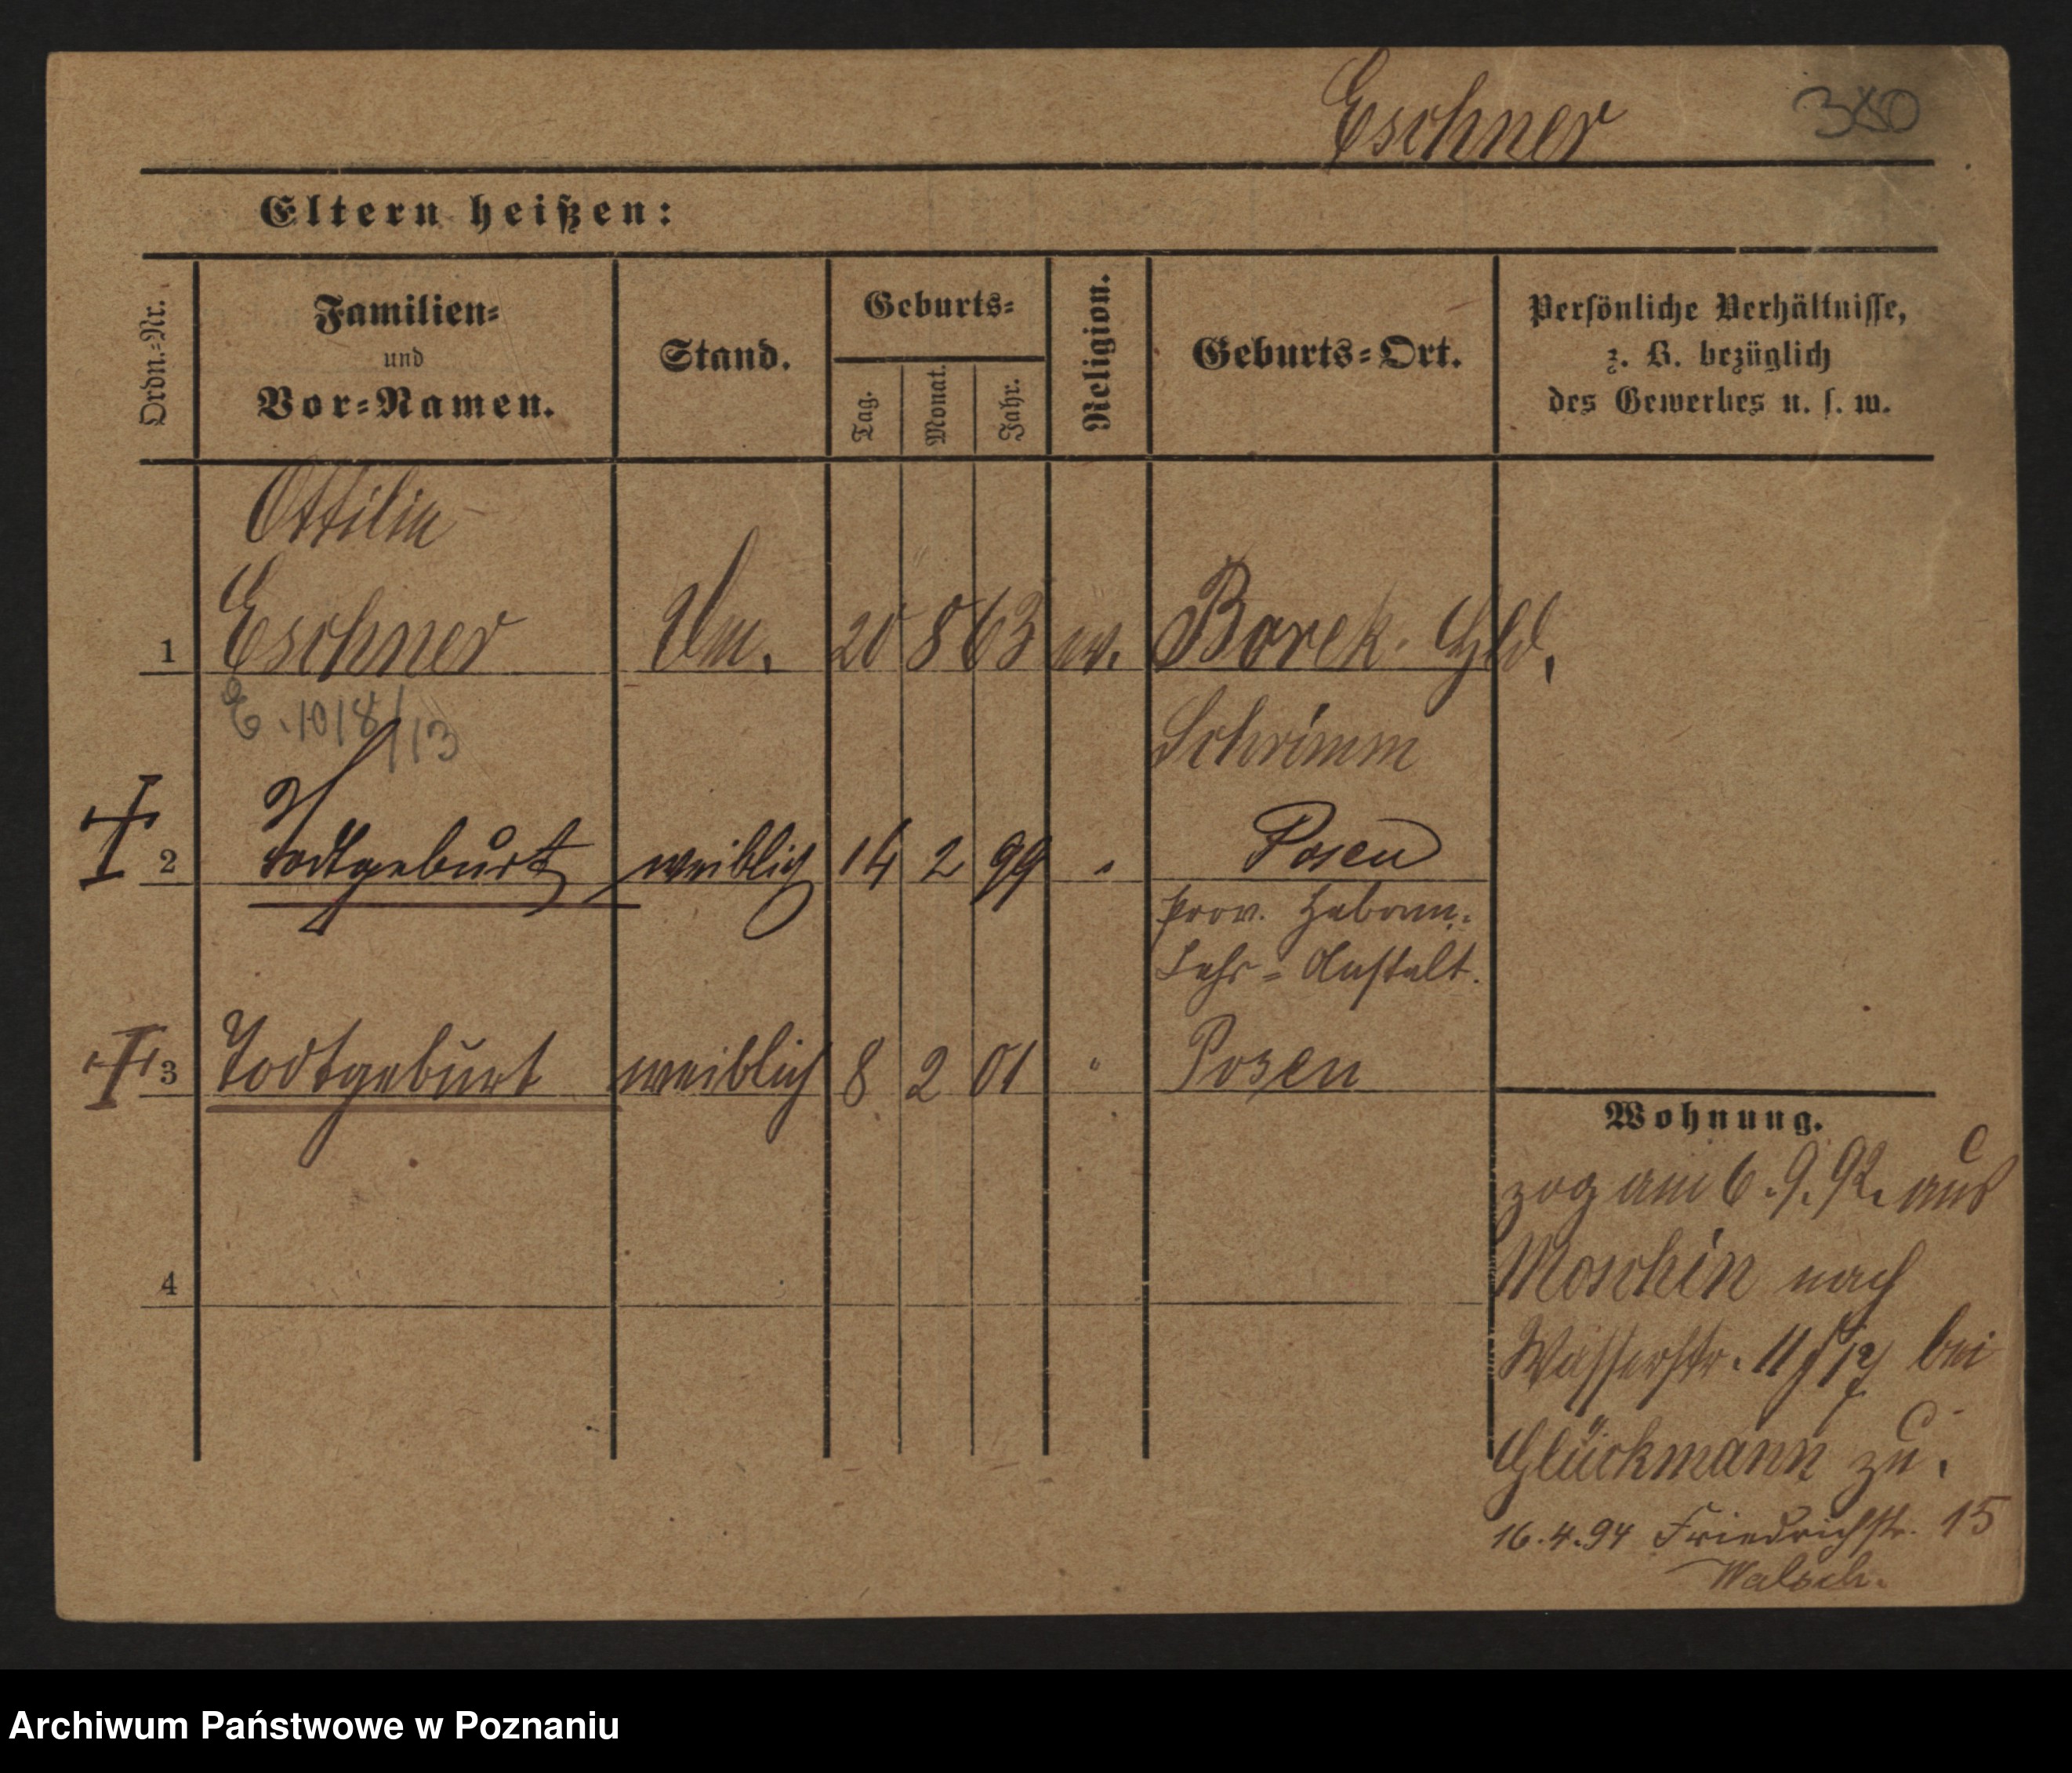 Eschner 380
Eltern heißen:
Ordn.-Nr.
Familien- und Vor-Namen.
Stand.
Geburts-
Tag. Monat. Jahr.
Religion.
Geburts-Ort.
Persönliche Verhältnisse,
z. B. bezüglich
des Gewerbes u. s. w.
Ottilie
1 Eschner 20 8 63 Borek
E. 1018/13 Schrimm
2 Todtgeburt weiblich 14 2 99 " Posen
Prov. Hebamm.-
Lehr-Anstalt.
3 Todtgeburt weiblich 8 2 01 " Posen
4
Wohnung.
zog am 6.9.92. aus
Moschin nach
Wasserstr. bei
Glückmann zu.
16.4.94 Friedrichstr. 15
Walsch.
Archiwum Państwowe w Poznaniu